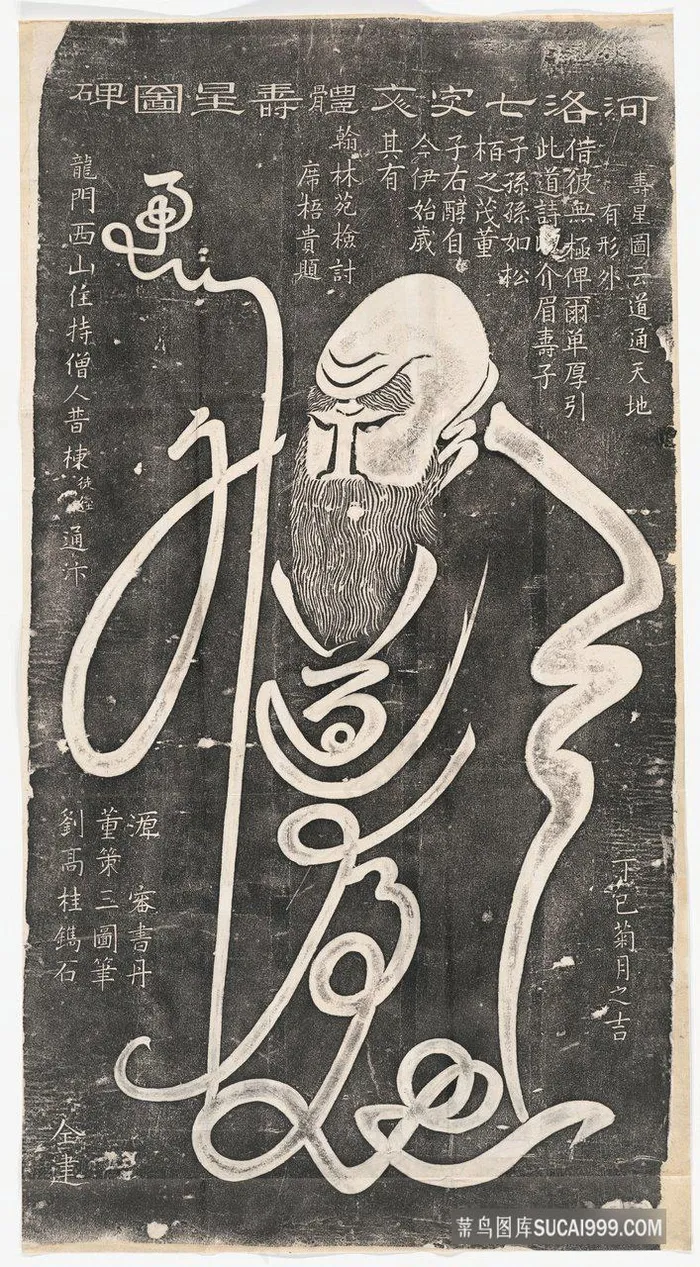 河洛七安亥體壽星圖碑石
壽星圖云道通天地
有形外
借彼無極俾爾单厚引
此道詩 介眉壽子
子孫孫如松
栢之茂董
子右醇自
今伊始歲
其有
翰林苑檢討
席梧貴題
龍門西山住持僧人普棟 徒侄 通汴
源 審書丹
董策三圖筆
劉高桂鐫石
丁巳菊月之吉
仝建
菜鸟图库SUCAI999.COM